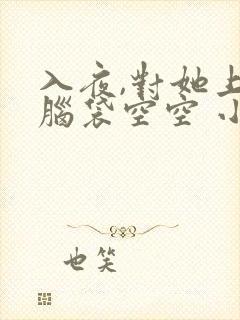 入夜,對她上
腦袋空空 小
也笑